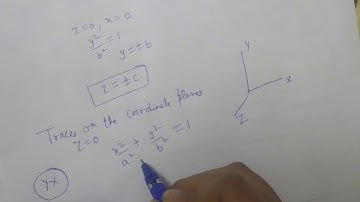 z=0, x=0
y²/b² = 1   y = ±b
z = ±c
Traces on the coordinate planes
z=0   x²/a² + y²/b² = 1
yx
y
x
z